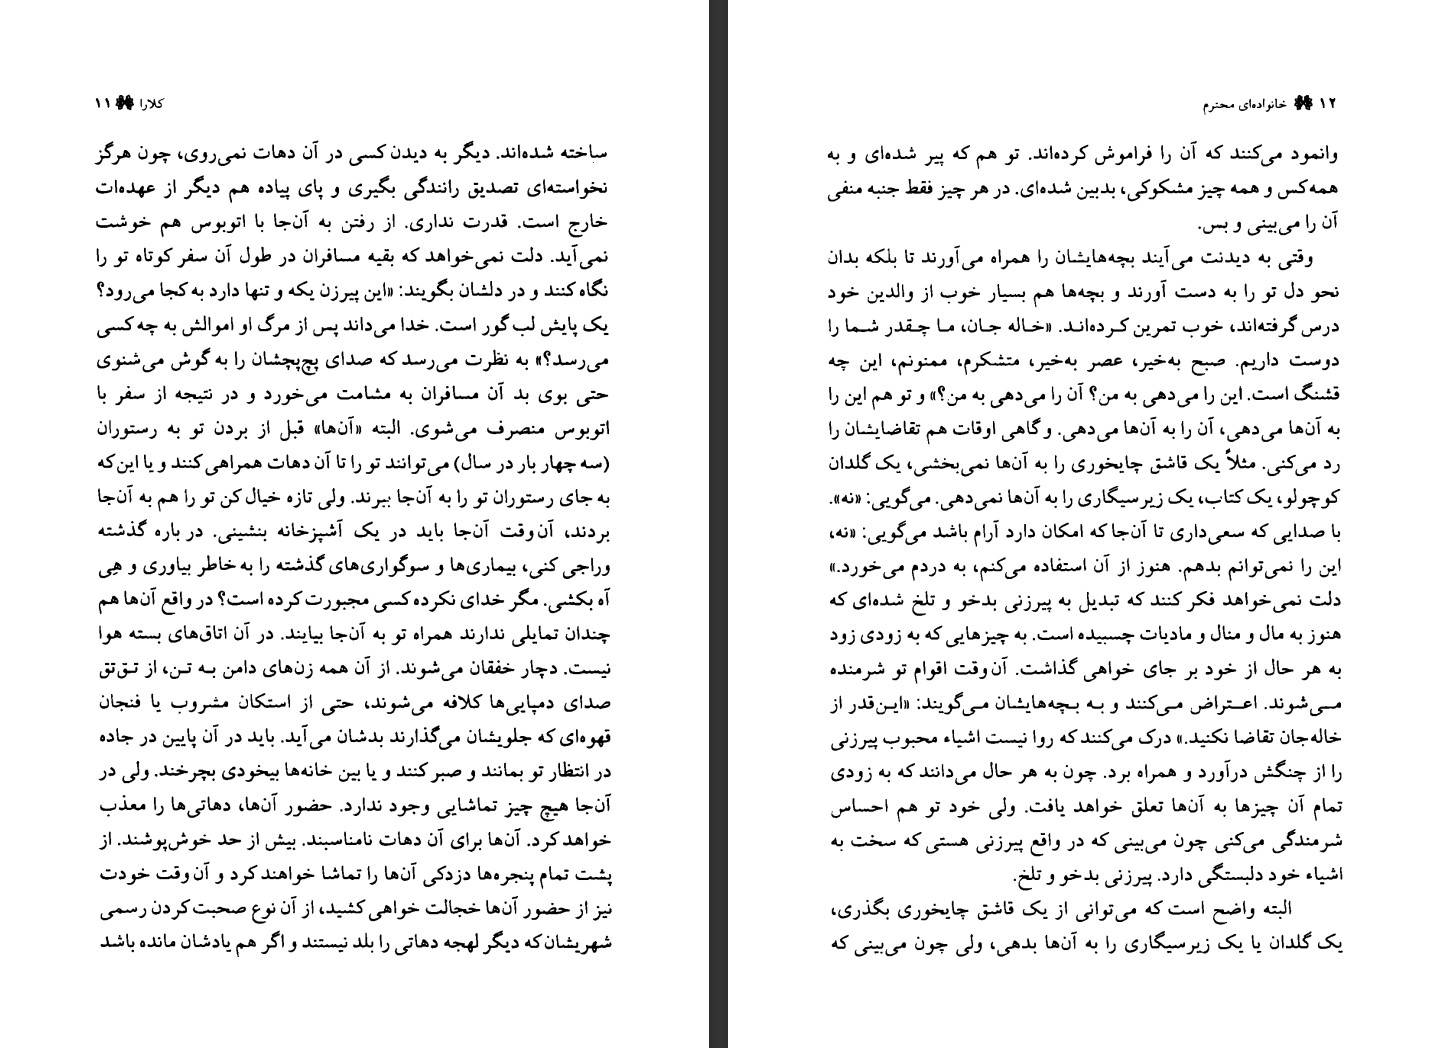 کلارا ۱۱
ساخته شده‌اند. دیگر به دیدن کسی در آن دهات نمی‌روی، چون هرگز
نخواسته‌ای تصدیق رانندگی بگیری و پای پیاده هم دیگر از عهده‌ات
خارج است. قدرت نداری. از رفتن به آن‌جا با اتوبوس هم خوشت
نمی‌آید. دلت نمی‌خواهد که بقیه مسافران در طول آن سفر کوتاه تو را
نگاه کنند و در دلشان بگویند: «این پیرزن یکه و تنها دارد به کجا می‌رود؟
یک پایش لب گور است. خدا می‌داند پس از مرگ او اموالش به چه کسی
می‌رسد؟» به نظرت می‌رسد که صدای پچ‌پچشان را به گوش می‌شنوی
حتی بوی بد آن مسافران به مشامت می‌خورد و در نتیجه از سفر با
اتوبوس منصرف می‌شوی. البته «آن‌ها» قبل از بردن تو به رستوران
(سه چهار بار در سال) می‌توانند تو را تا آن دهات همراهی کنند و یا این‌که
به جای رستوران تو را به آن‌جا ببرند. ولی تازه خیال کن تو را هم به آن‌جا
بردند، آن‌وقت آن‌جا باید در یک آشپزخانه بنشینی. در باره گذشته
وراجی کنی، بیماری‌ها و سوگواری‌های گذشته را به خاطر بیاوری و هِی
آه بکشی. مگر خدای نکرده کسی مجبورت کرده است؟ در واقع آن‌ها هم
چندان تمایلی ندارند همراه تو به آن‌جا بیایند. در آن اتاق‌های بسته هوا
نیست. دچار خفقان می‌شوند. از آن همه زن‌های دامن به تن، از تق‌تق
صدای دمپایی‌ها کلافه می‌شوند، حتی از استکان مشروب یا فنجان
قهوه‌ای که جلویشان می‌گذارند بدشان می‌آید. باید در آن پایین در جاده
در انتظار تو بمانند و صبر کنند و یا بین خانه‌ها بیخودی بچرخند. ولی در
آن‌جا هیچ چیز تماشایی وجود ندارد. حضور آن‌ها، دهاتی‌ها را معذب
خواهد کرد. آن‌ها برای آن دهات نامناسبند. بیش از حد خوش‌پوشند. از
پشت تمام پنجره‌ها دزدکی آن‌ها را تماشا خواهند کرد و آن‌وقت خودت
نیز از حضور آن‌ها خجالت خواهی کشید، از آن نوع صحبت کردن رسمی
شهریشان که دیگر لهجه دهاتی را بلد نیستند و اگر هم یادشان مانده باشد
۱۲ خانواده‌ای محترم
وانمود می‌کنند که آن را فراموش کرده‌اند. تو هم که پیر شده‌ای و به
همه‌کس و همه چیز مشکوکی، بدبین شده‌ای. در هر چیز فقط جنبه منفی
آن را می‌بینی و بس.
وقتی به دیدنت می‌آیند بچه‌هایشان را همراه می‌آورند تا بلکه بدان
نحو دل تو را به دست آورند و بچه‌ها هم بسیار خوب از والدین خود
درس گرفته‌اند، خوب تمرین کرده‌اند. «خاله جان، ما چقدر شما را
دوست داریم. صبح به‌خیر، عصر به‌خیر، متشکرم، ممنونم، این چه
قشنگ است. این را می‌دهی به من؟ آن را می‌دهی به من؟» و تو هم این را
به آن‌ها می‌دهی، آن را به آن‌ها می‌دهی. و گاهی اوقات هم تقاضایشان را
رد می‌کنی. مثلاً یک قاشق چایخوری را به آن‌ها نمی‌بخشی، یک گلدان
کوچولو، یک کتاب، یک زیرسیگاری را به آن‌ها نمی‌دهی. می‌گویی: «نه».
با صدایی که سعی‌داری تا آن‌جا که امکان دارد آرام باشد می‌گویی: «نه،
این را نمی‌توانم بدهم. هنوز از آن استفاده می‌کنم، به دردم می‌خورد.»
دلت نمی‌خواهد فکر کنند که تبدیل به پیرزنی بدخو و تلخ شده‌ای که
هنوز به مال و منال و مادیات چسبیده است. به چیزهایی که به زودی زود
به هر حال از خود بر جای خواهی گذاشت. آن‌وقت اقوام تو شرمنده
می‌شوند. اعتراض می‌کنند و به بچه‌هایشان می‌گویند: «این‌قدر از
خاله‌جان تقاضا نکنید.» درک می‌کنند که روا نیست اشیاء محبوب پیرزنی
را از چنگش درآورد و همراه برد. چون به هر حال می‌دانند که به زودی
تمام آن چیزها به آن‌ها تعلق خواهد یافت. ولی خود تو هم احساس
شرمندگی می‌کنی چون می‌بینی که در واقع پیرزنی هستی که سخت به
اشیاء خود دلبستگی دارد. پیرزنی بدخو و تلخ.
البته واضح است که می‌توانی از یک قاشق چایخوری بگذری،
یک گلدان یا یک زیرسیگاری را به آن‌ها بدهی، ولی چون می‌بینی که